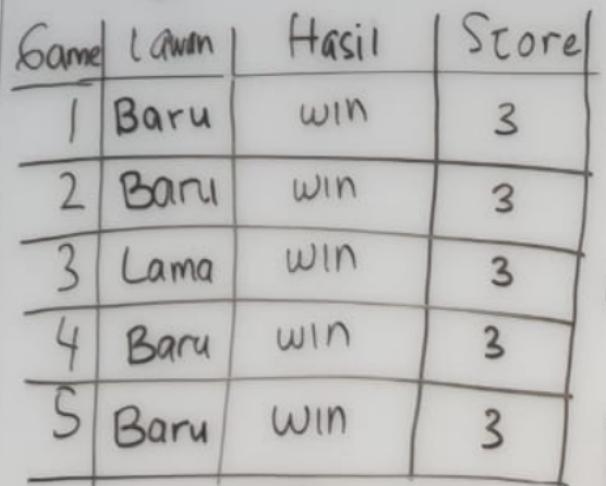 Game Lawan Hasil Score
1 Baru win 3
2 Baru win 3
3 Lama win 3
4 Baru win 3
5 Baru win 3